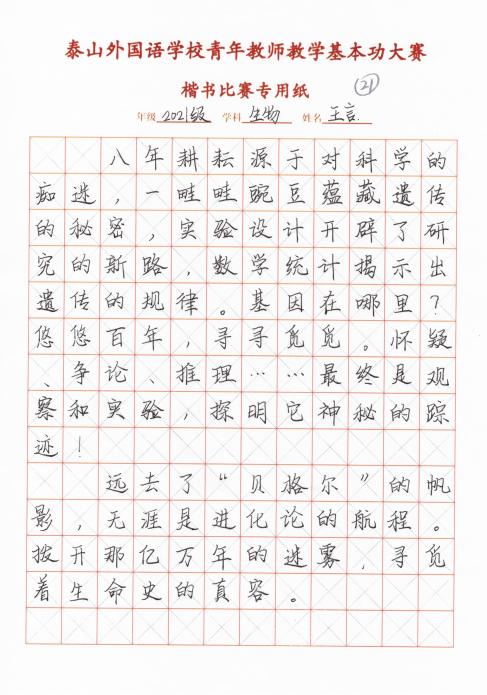 泰山外国语学校青年教师教学基本功大赛
楷书比赛专用纸
21
年级 2021级 学科 生物 姓名 王言.
八年耕耘源于对科学的
痴迷，一畦畦豌豆蕴藏遗传
的秘密，实验设计开辟了研
究的新路，数学统计揭示出
遗传的规律。基因在哪里？
悠悠百年，寻寻觅觅。怀疑
、争论、推理……最终是观
察和实验，探明它神秘的踪
迹！
远去了“贝格尔”的帆
影，无涯是进化论的航程。
拨开那亿万年的迷雾，寻觅
着生命史的真容。